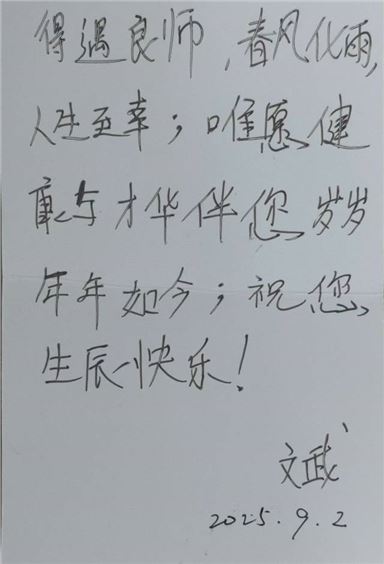 得遇良师,春风化雨,
人生至幸;唯愿健
康与才华伴您岁岁
年年如今;祝您
生辰快乐!
文武
2025.9.2